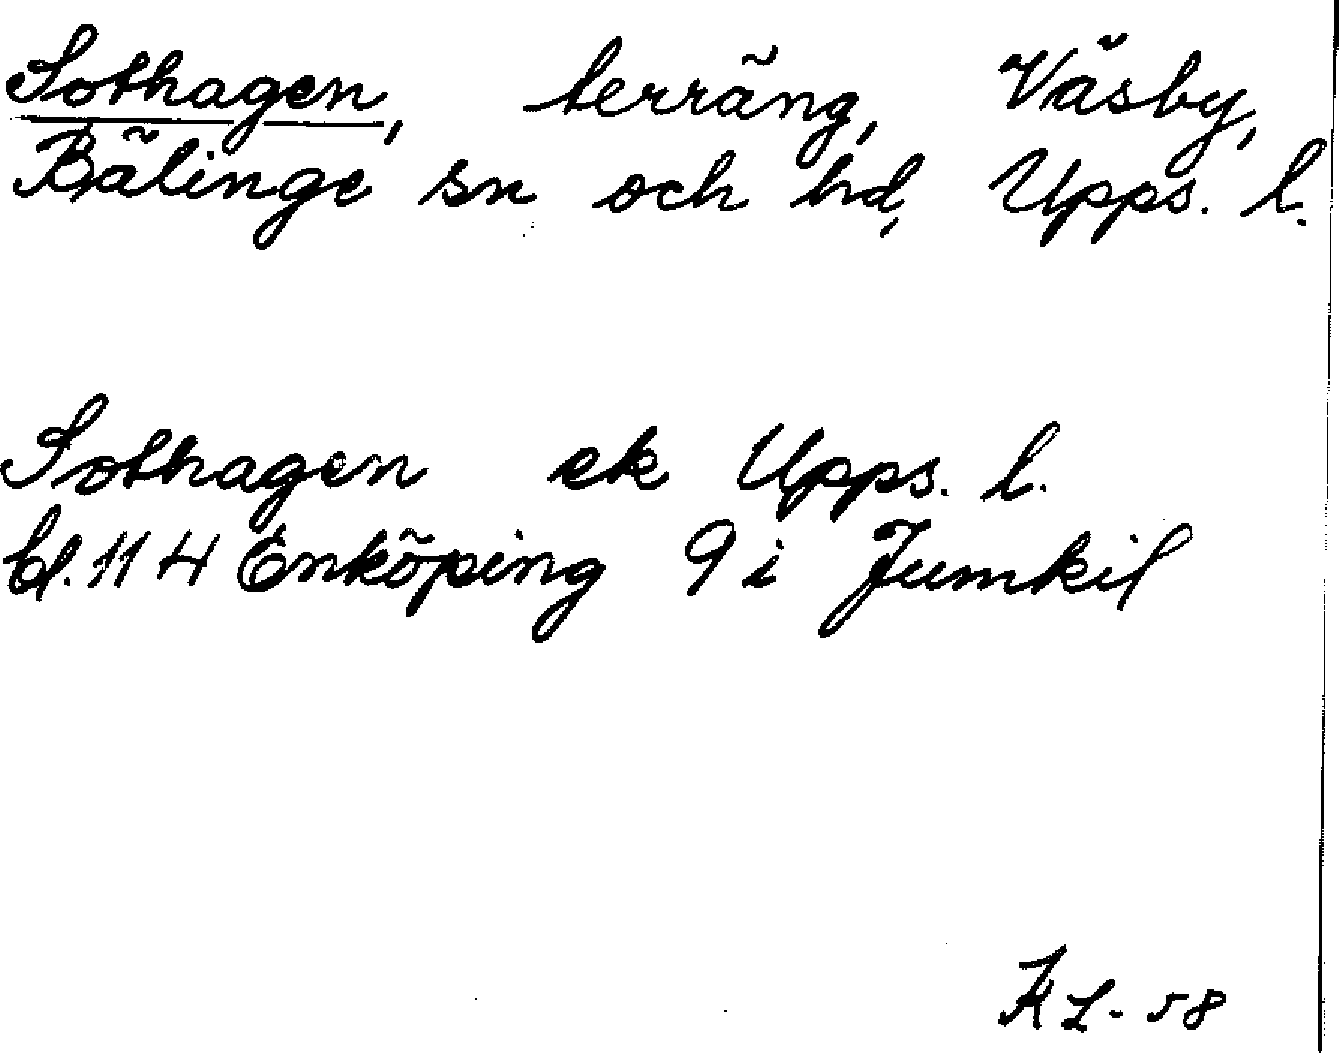 Sothagen, terräng, Väsby,
Bälinge sn och hd, Upps. l.
Sothagen ek Upps. l.
bl. 114 Enköping 9 i Jumkil
KL-58